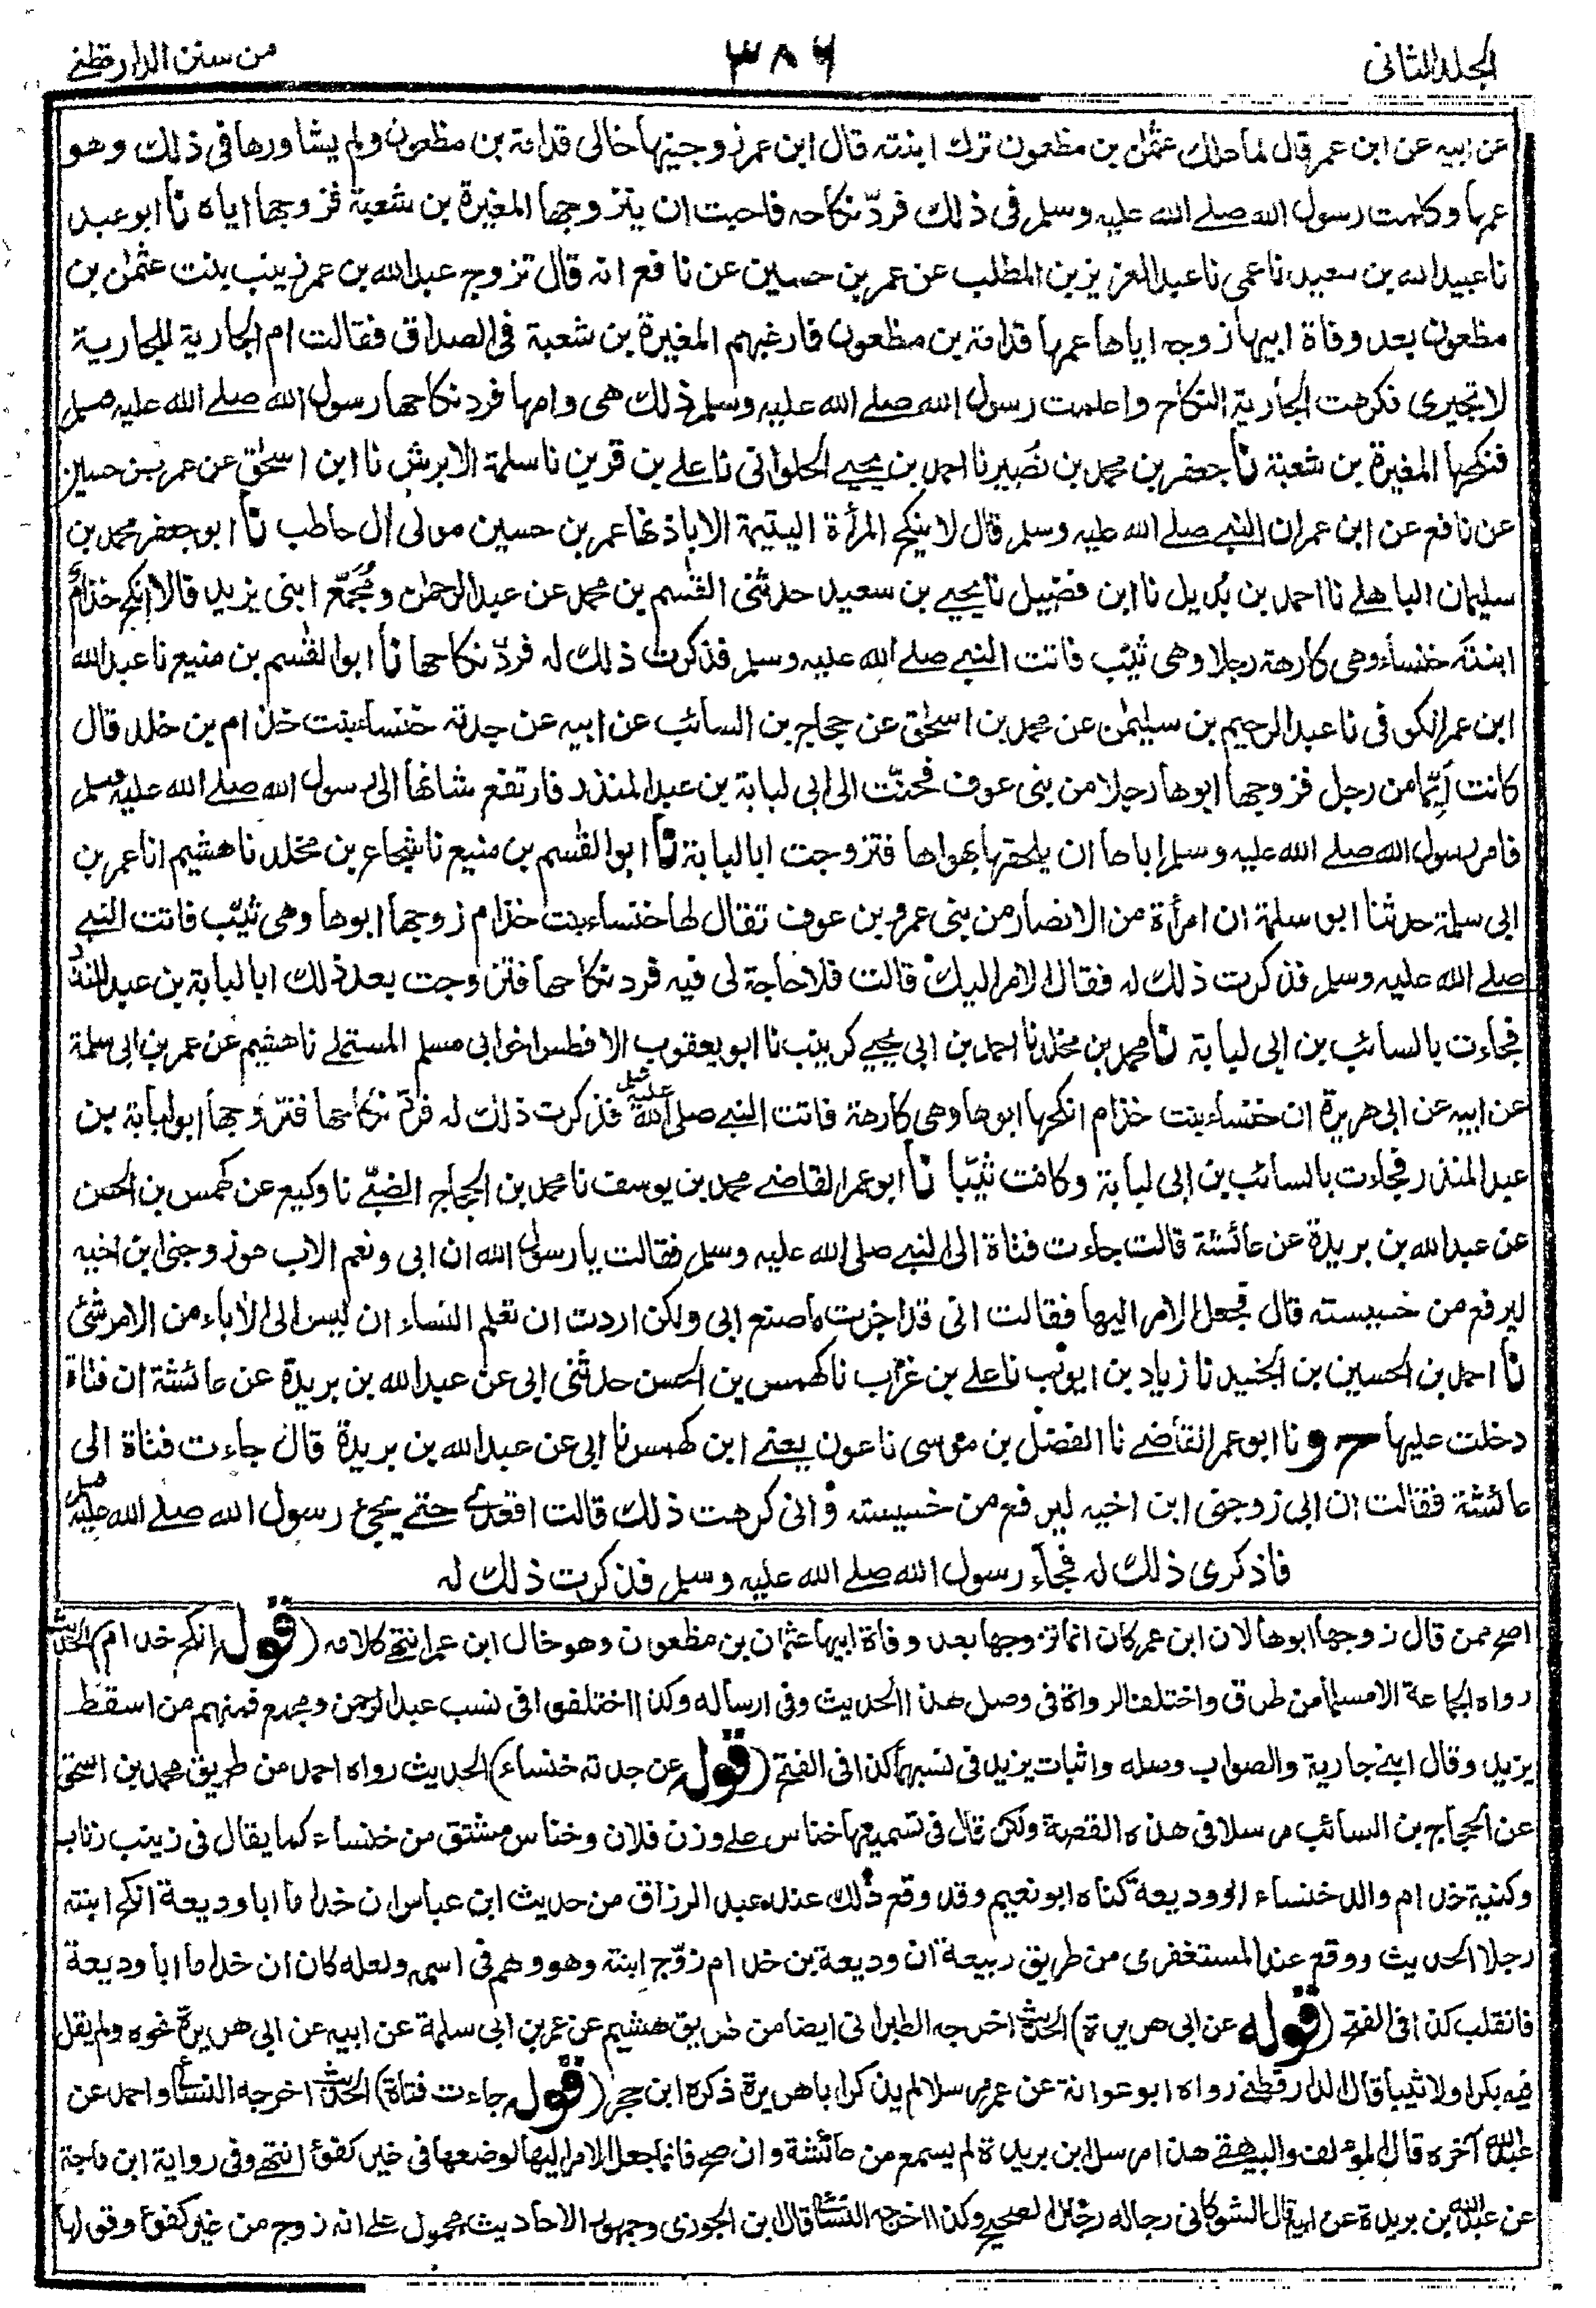 الجلد الثانى
٣٨٦
من سنن الدارقطنے
عن ابيه عن ابن عمر قال لما هلك عثمٰن بن مظعون ترك ابنته قال ابن عمر زوجنيها خالى قدامة بن مظعون ولم يشاورها فى ذلك وهو
عمها وكلمت رسول الله صلے الله عليه وسلم فى ذلك فردّ نكاحه فاحبت ان يتزوجها المغيرة بن شعبة فزوجها اياه نا ابو عبيد
نا عبيد الله بن سعيد نا عمى نا عبد العزيز بن المطلب عن عمر بن حسين عن نافع انه قال تزوج عبد الله بن عمر زينب بنت عثمٰن بن
مظعون بعد وفاة ابيها زوجه اياها عمها قدامة بن مظعون فارغبهم المغيرة بن شعبة فى الصداق فقالت ام الجارية للجارية
لا تجيرى فكرهت الجارية النكاح واعلمت رسول الله صلے الله عليه وسلم ذلك هى وامها فرد نكاحها رسول الله صلے الله عليه وسلم
فنكحها المغيرة بن شعبة نا جعفر بن محمد بن نصير نا احمد بن يحيے الحلوانى نا علے بن قرين نا سلمة الابرش نا ابن اسحٰق عن عمر بن حسين
عن نافع عن ابن عمر ان النبے صلے الله عليه وسلم قال لا ينكح المرأة اليتيمة الا باذنها عمر بن حسين مولى اٰل حاطب نا ابو جعفر محمد بن
سليمان الباهلے نا احمد بن بُديل نا ابن فضيل نا يحيے بن سعيد حدثنى القٰسم بن محمد عن عبد الرحمٰن ومُجَمّع ابنى يزيد قالا انكح خذام
ابنته خنساء وهى كارهة رجلا وهى ثيّب فاتت النبے صلے الله عليه وسلم فذكرت ذلك له فردّ نكاحها نا ابو القٰسم بن منيع نا عبد الله
ابن عمر الكوفى نا عبد الرحيم بن سليمٰن عن محمد بن اسحٰق عن حجاج بن السائب عن ابيه عن جدته خنساء بنت خذام بن خلد قال
كانت ايّما من رجل فزوجها ابوها رجلا من بنى عوف فحنّت الى ابى لبابة بن عبد المنذر فارتفع شانها الى رسول الله صلے الله عليه وسلم
فامر رسول الله صلے الله عليه وسلم اباها ان يلحقها بهواها فتزوجت ابا لبابة نا ابو القٰسم بن منيع نا شجاع بن مخلد نا هشيم انا عمر بن
ابى سلمة حدثنا ابو سلمة ان امرأة من الانصار من بنى عمرو بن عوف تقال لها خنساء بنت خذام زوجها ابوها وهى ثيّب فاتت النبے
صلے الله عليه وسلم فذكرت ذلك له فقال الامر اليك قالت فلا حاجة لى فيه فرد نكاحها فتزوجت بعد ذلك ابا لبابة بن عبد المنذر
فجاءت بالسائب بن ابى لبابة نا محمد بن مخلد نا احمد بن ابى يحيے كرينب نا ابو يعقوب الافطس اخو ابى مسلم المستملے نا هشيم عن عمر بن ابى سلمة
عن ابيه عن ابى هريرة ان خنساء بنت خذام انكحها ابوها وهى كارهة فاتت النبے صلى الله عليه وسلم فذكرت ذلك له فردّ نكاحها فتزوجها ابو لبابة بن
عبد المنذر فجاءت بالسائب بن ابى لبابة وكانت ثيّبا نا ابو عمر القاضے محمد بن يوسف نا محمد بن الحجاج الضبّے نا وكيع عن كهمس بن الحسن
عن عبد الله بن بريدة عن عائشة قالت جاءت فتاة الى النبے صلى الله عليه وسلم فقالت يا رسول الله ان ابى ونعم الاب هو زوجنى ابن اخيه
ليرفع من خسيسته قال فجعل الامر اليها فقالت انى قد اجزت ما صنع ابى ولكن اردت ان تعلم النساء ان ليس الى الاٰباء من الامر شئ
نا احمد بن الحسين بن الجنيد نا زياد بن ايوب نا علے بن غراب نا كهمس بن الحسن حدثنى ابى عن عبد الله بن بريدة عن عائشة ان فتاة
دخلت عليها ح ونا ابو عمر القاضے نا الفضل بن موسى نا عون يعنے ابن كهمس نا ابى عن عبد الله بن بريدة قال جاءت فتاة الى
عائشة فقالت ان ابى زوجنى ابن اخيه ليرفع من خسيسته وانى كرهت ذلك قالت اقعدے حتے يجئ رسول الله صلے الله عليه وسلم
فاذكرى ذلك له فجآء رسول الله صلے الله عليه وسلم فذكرت ذلك له
اصح ممن قال زوجها ابوها لان ابن عمر كان انما تزوجها بعد وفاة ابيها عثمان بن مظعون وهو خال ابن عمر انتهے كلامه (قوله انكح خدام) الحديث
رواه الجماعة الا مسلما من طرق واختلف الرواة فى وصل هذا الحديث وفى ارساله وكذا اختلفوا فى نسب عبد الرحمن ومجمع فمنهم من اسقط
يزيد وقال ابنے جارية والصواب وصله واثبات يزيد فى نسبهما كذا فى الفتح (قوله عن جدته خنساء) الحديث رواه احمد من طريق محمد بن اسحٰق
عن الحجاج بن السائب مرسلا فى هذه القصة ولكن قال فى تسميتها خناس علے وزن فلان وخناس مشتق من خنساء كما يقال فى زينب زناب
وكنية خدام والد خنساء ابو وديعة كناه ابو نعيم وقد وقع ذلك عند عبد الرزاق من حديث ابن عباس ان خداما ابا وديعة انكح ابنته
رجلا الحديث ووقع عند المستغفرى من طريق ربيعة ان وديعة بن خدام زوّج ابنته وهو وهم فى اسمه ولعله كان ان خداما ابا وديعة
فانقلب كذا فى الفتح (قوله عن ابى هريرة) الحديث اخرجه الطبرانى ايضا من طريق هشيم عن عمر بن ابى سلمة عن ابيه عن ابى هريرة نحوه ولم يقل
فيه بكرا ولا ثيبا قال الدارقطنے رواه ابو عوانة عن عمر مرسلا لم يذكر ابا هريرة ذكره ابن حجر (قوله جاءت فتاة) الحديث اخرجه النسائے واحمد عن
عبد الله اٰخره قال المؤلف والبيهقے هذا مرسل ابن بريدة لم يسمع من عائشة وان صح فانما جعل الامر اليها لوضعها فى غير كفؤ انتهے وفى رواية ابن ماجة
عن عبد الله بن بريدة عن ابيه قال الشوكانى رجاله رجال الصحيح وكذا اخرجه النسائے قال ابن الجوزى وجمهور الاحاديث محمول علے انه زوج من غير كفؤ وقولها